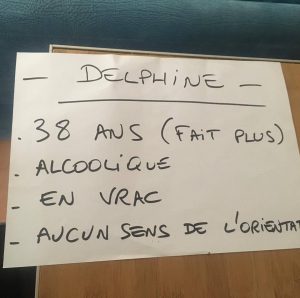 - DELPHINE -
. 38 ANS (FAIT PLUS)
. ALCOOLIQUE
- EN VRAC
- AUCUN SENS DE L'ORIENTAT